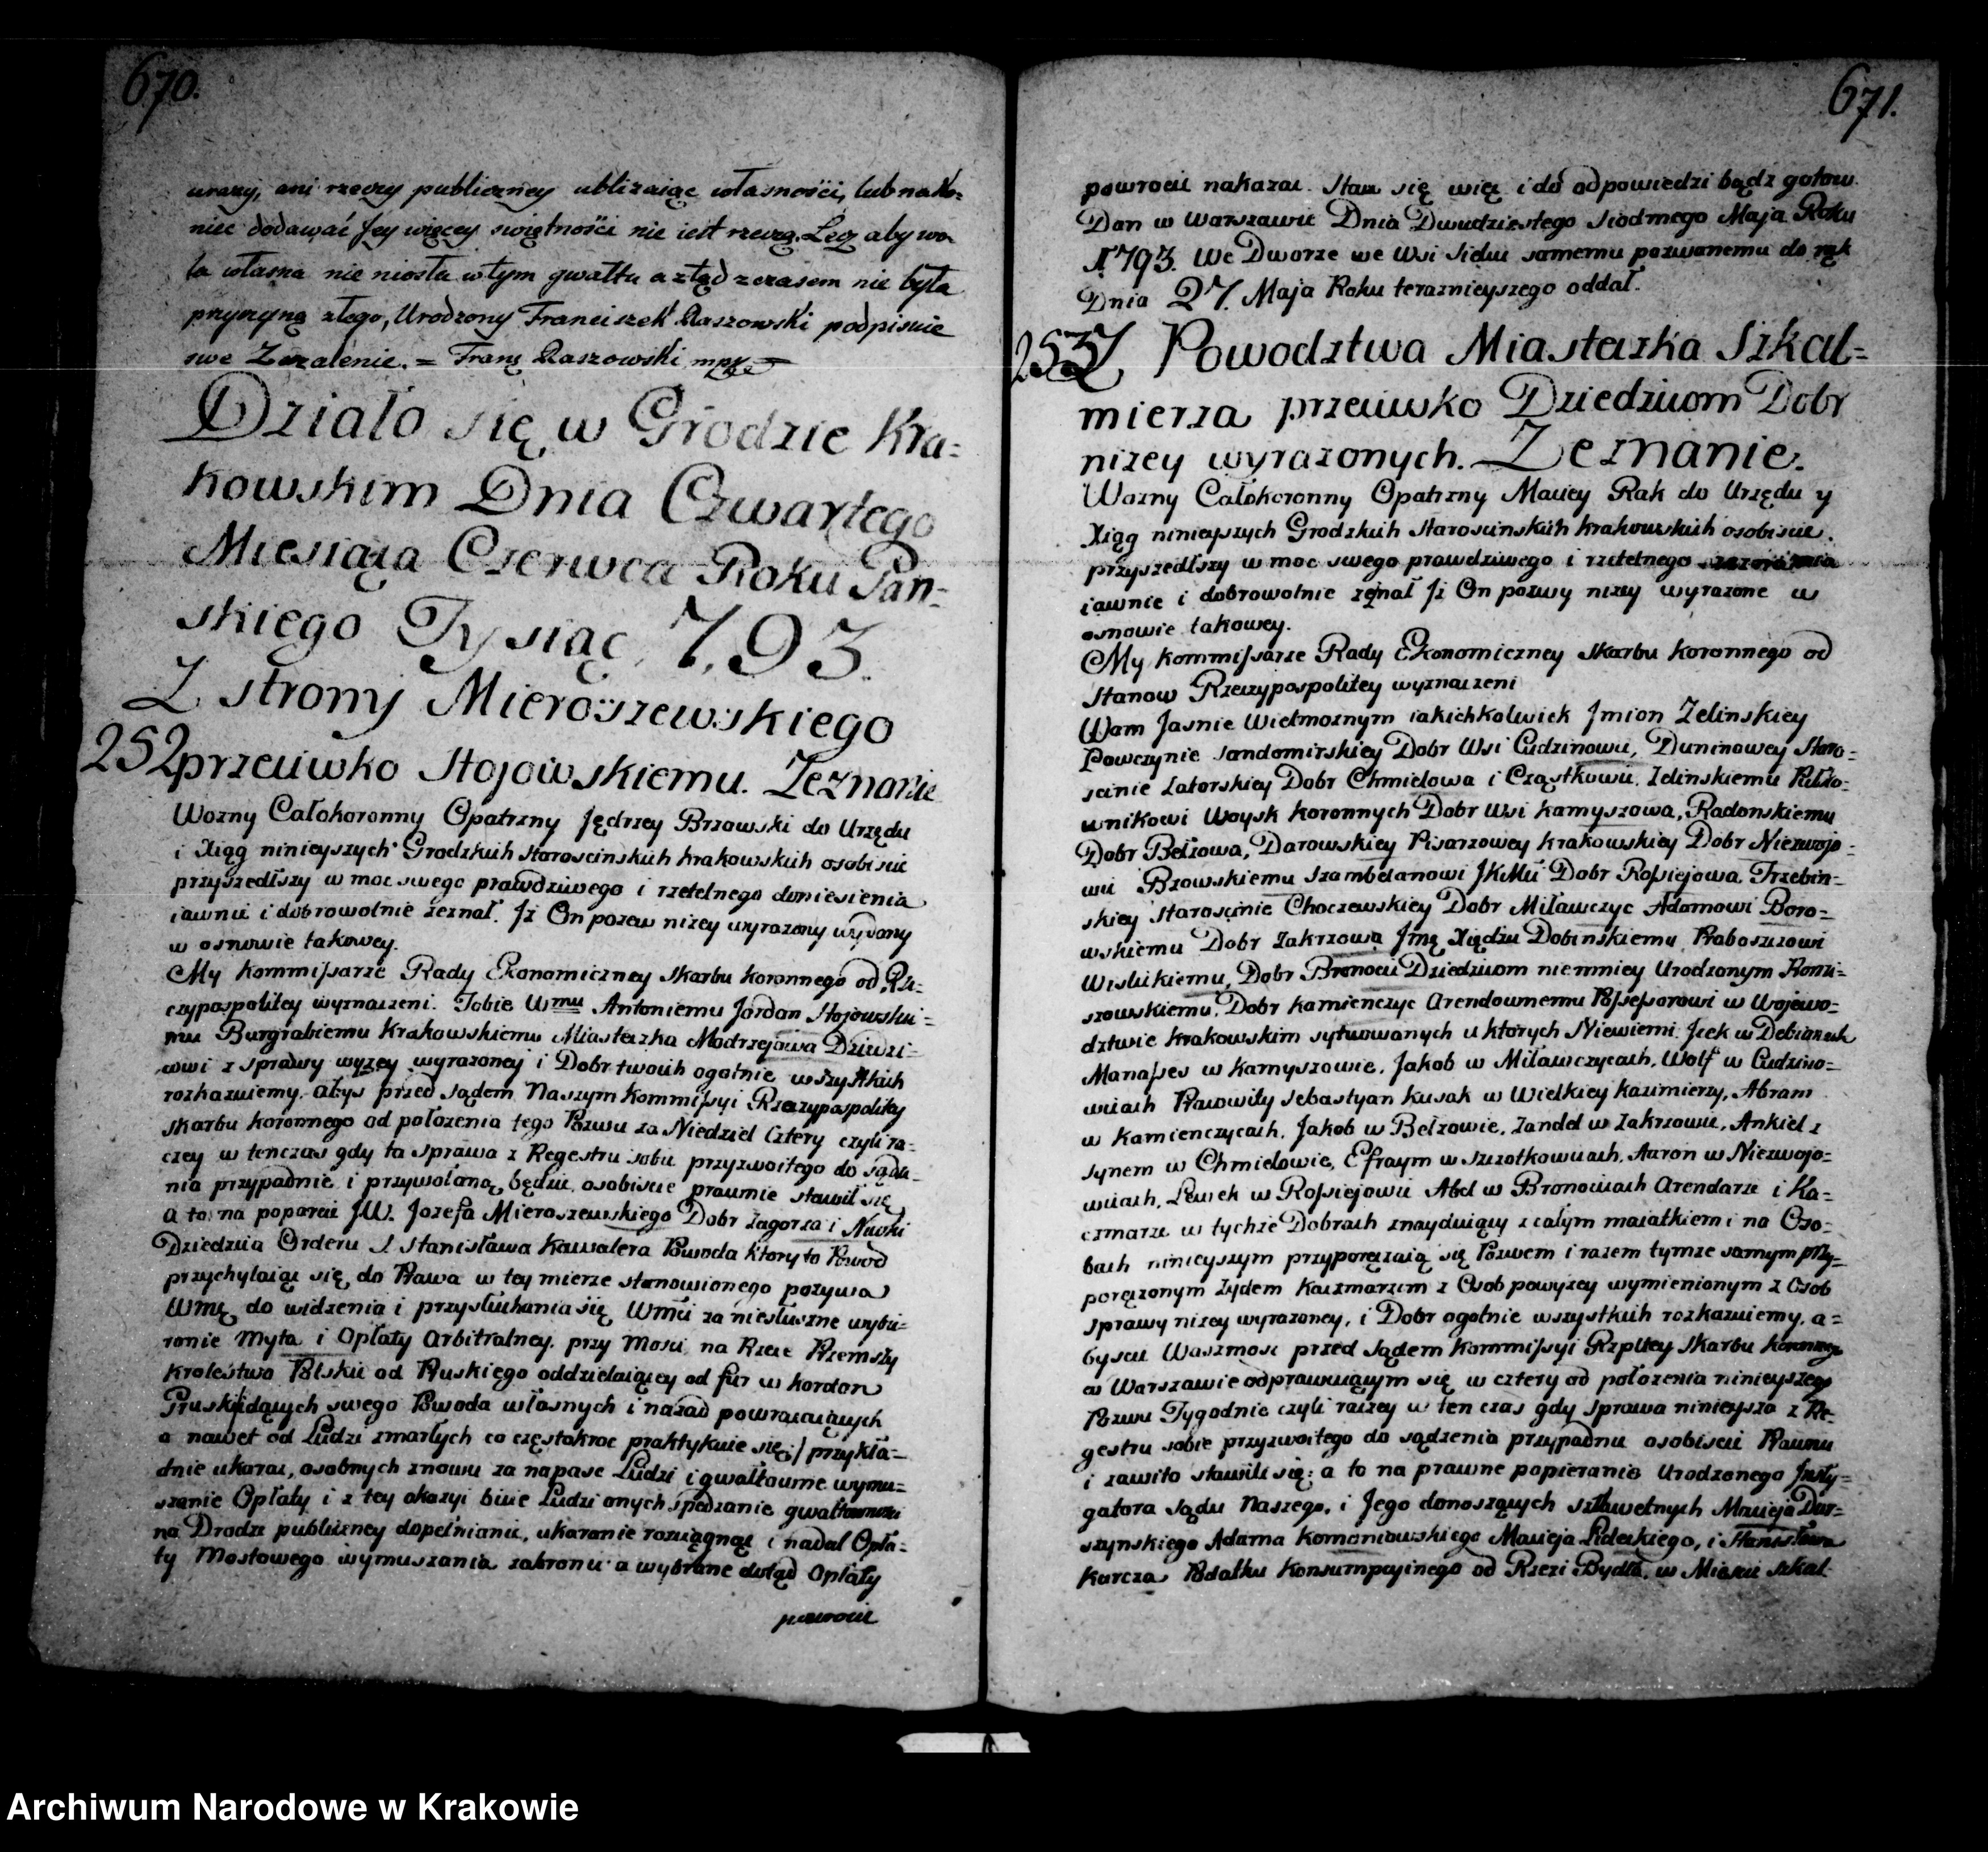 670.
urazy, ani rzeczy publiczney ubliżaiąc własności, lub nako-
niec dodawać Jey więcey swiętności nie iest rzeczą. Lecz aby wo-
la własna nie niosła w tym gwałtu a ztąd z czasem nie była
przyczyną złego, Urodzony Franciszek Raszowski podpisuie
swe Zezalenie. = Franç Raszowski mpk =
Działo się w Grodzie Kra-
kowskim Dnia Czwartego
Miesiąca Czerwca Roku Pan-
skiego Tysiąc, 7,93.
Z strony Mieroszewskiego
252 przeciwko Stojowskiemu. Zeznanie
Wozny Całokoronny Opatrzny Jędrzey Brzowski do Urzędu
i Xiąg ninieyszych Grodzkich Staroscinskich Krakowskich osobiscie
przyszedłszy w moc swego prawdziwego i rzetelnego doniesienia
iawnie i dobrowolnie zeznał. Jż On pozew nizey wyrazony wydany
w osnowie takowey.
My Kommissarze Rady Ekonomiczney Skarbu Koronnego od Rze-
czypospolitey wyznaczeni. Tobie Wmu Antoniemu Jordan Stojowskie-
mu Burgrabiemu Krakowskiemu Miasteczka Modrzejowa Dziedzi-
cowi z sprawy wyzey wyrazoney i Dobr twoich ogolnie wszystkich
rozkazuiemy, abyś przed Sądem Naszym Kommissyi Rzeczypospolitey
Skarbu Koronnego od położenia tego Pozwu za Niedziel Cztery czyli ra-
czey w tenczas gdy ta sprawa z Regestru sobie przyzwoitego do sądze-
nia przypadnie i przywołaną będzie, osobiscie prawnie stawił się,
a to na poparcie JW. Jozefa Mieroszewskiego Dobr Zagorza i Niwki
Dziedzica Orderu S. Stanisława Kawalera Powoda ktory to Powod
przychylaiąc się do Prawa w tey mierze stanowionego pozywa
Wmę do widzenia i przysłuchania się Wmci za niesłuszne wybie-
ranie Myta i Opłaty arbitralney przy Moscie na Rzece Przemszy
Krolestwo Polskie od Pruskiego oddzielaiącey od fur w kordon
Pruski idących swego Powoda własnych i nazad powracaiących
a nawet od Ludzi zmarłych co częstokroc praktykuie się / przykła-
dnie ukarac, osobnych znowu za napasc Ludzi i gwałtowne wymu-
szanie Opłaty i z tey okazyi bicie Ludzi onych spędzanie gwałtowne
na Drodze publiczney dopełnianie, ukaranie rozciągnąc i nadal Opła-
ty Mostowego wymuszania zabronic a wybrane dotąd Opłaty
powrocic
671.
powrocic nakazac. Staw się więc i do odpowiedzi bądz gotow.
Dan w Warszawie Dnia Dwudziestego Siodmego Maja Roku
1793. We Dworze we Wsi Sidu samemu pozwanemu do rąk
Dnia 27. Maja Roku teraznieyszego oddał.
253 Z Powodztwa Miasteczka Szkal-
mierza przeciwko Dziedzicom Dobr
nizey wyrazonych. Zeznanie.
Wozny Całokoronny Opatrzny Maciey Rak do Urzędu y
Xiąg ninieyszych Grodzkich Staroscinskich Krakowskich osobiscie
przyszedłszy w moc swego prawdziwego i rzetelnego
iawnie i dobrowolnie zeznał Jż On pozwy nizey wyrazone w
osnowie takowey.
My Kommissarze Rady Ekonomiczney Skarbu Koronnego od
Stanow Rzeczypospolitey wyznaczeni
Wam Jasnie Wielmoznym iakichkolwiek Jmion Zelinskiey
Łowczynie Sandomirskiey Dobr Wsi Cudzinowic, Duninowey Staro-
scinie Zatorskiey Dobr Chmielowa i Cząstkowic, Zelinskiemu Pułko-
wnikowi Woysk Koronnych Dobr Wsi Kamyszowa, Radonskiemu
Dobr Bełzowa, Darowskiey Pisarzowey Krakowskiey Dobr Niezwojo-
wic Bzowskiemu Szambelanowi JKMci Dobr Rosiejowa, Trzebin-
skiey Staroscinie Choczewskiey Dobr Milawczyc Adamowi Boro-
wskiemu Dobr Zakrzowa Jmę Xiędzu Dobinskiemu Proboszczowi
Wislickiemu, Dobr Bronocic Dziedzicom niemniey Urodzonym Roni-
szowskiemu, Dobr Kamienczyc Arendownemu Possessorowi w Wojewo-
dztwie Krakowskim sytuowanych u ktorych Niewierni Jcek w Debianach
Manasses w Kamyszowie, Jakob w Milawczycach, Wolf w Cudzino-
wicach Prawowity Sebastyan Kusak w Wielkiey Kazimierzy, Abram
w Kamienczycach, Jakob w Bełzowie, Zandel w Zakrzowie, Ankiel z
synem w Chmielowie, Efraym w Szczotkowicach, Aaron w Niezwojo-
wicach, Lewek w Rosiejowie Abel w Bronocicach Arendarze i Ka-
czmarze w tychże Dobrach znayduiący z całym maiątkiem i na Oso-
bach ninieyszym przyporęczaią się Pozwem i razem tymże samym przy-
poręczonym Zydem Kaczmarzem z Osob powyzey wymienionym z Osob
sprawy nizey wyrazoney, i Dobr ogolnie wszystkich rozkazuiemy, a-
byscie Waszmosc przed Sądem Kommissyi Rzpltey Skarbu Koronnego
w Warszawie odprawuiącym się w cztery od położenia ninieyszego
Pozwu Tygodnie czyli raczey w ten czas gdy sprawa ninieysza z Re-
gestru sobie przyzwoitego do sądzenia przypadnie osobiscie Prawnie
i zawito stawili się: a to na prawne popieranie Urodzonego Insty-
gatora Sądu Naszego, i Jego donoszących Szławetnych Macieja Dur-
szynskiego Adama Komoniowskiego Macieja Lideckiego, i Stanisława
Karcza Podatku Konsumpcyinego od Rzezi Bydła, w Miescie Szkal-
Archiwum Narodowe w Krakowie